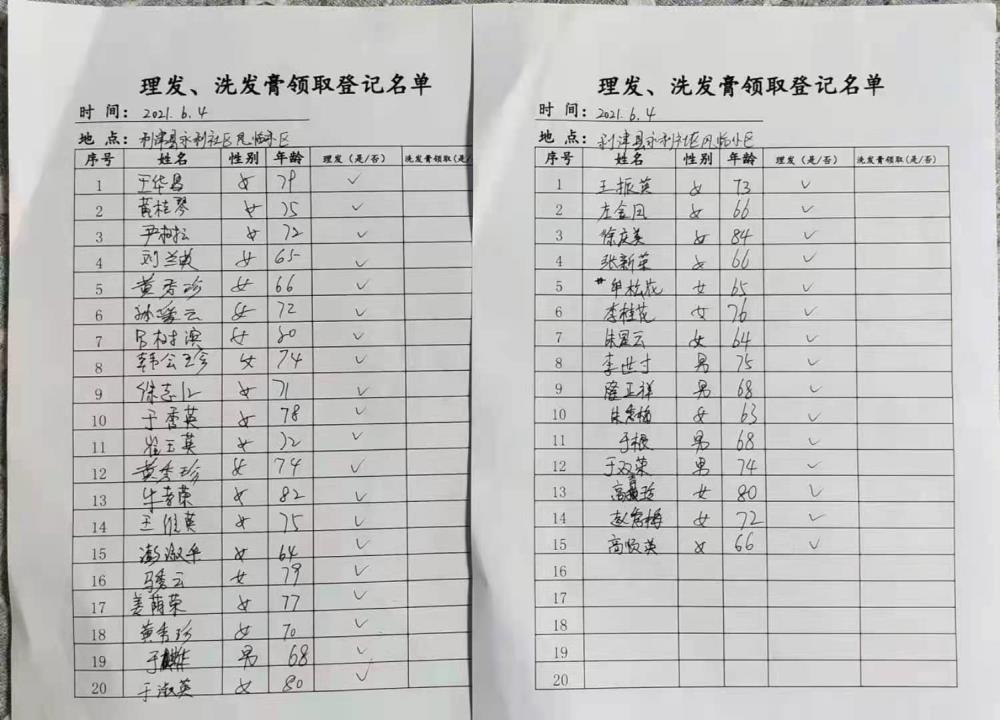 理发、洗发膏领取登记名单
时 间： 2021.6.4
地 点： 利津县永利社区凤临小区
序号 姓名 性别 年龄 理发（是/否） 洗发膏领取(是/
1 王华昌 女 79 ✓
2 黄桂琴 女 75 ✓
3 女 72 ✓
4 刘兰英 女 65 ✓
5 黄秀珍 女 66 ✓
6 孙爱云 女 72 ✓
7 女 80 ✓
8 韩公玉珍 女 74 ✓
9 徐志 女 71 ✓
10 于香英 女 78 ✓
11 崔玉英 女 72 ✓
12 黄秀珍 女 74 ✓
13 女 82 ✓
14 王维英 女 75 ✓
15 女 64 ✓
16 马秀云 女 79 ✓
17 姜荫荣 女 77 ✓
18 黄秀珍 女 70 ✓
19 于 男 68 ✓
20 于淑英 女 80 ✓
理发、洗发膏领取登记名单
时 间： 2021.6.4
地 点： 利津县永利社区凤临小区
序号 姓名 性别 年龄 理发（是/否） 洗发膏领取(是/否)
1 王振英 女 73 ✓
2 左金凤 女 66 ✓
3 徐庆美 女 84 ✓
4 张新荣 女 66 ✓
5 女 65 ✓
6 李桂花 女 76 ✓
7 朱 云 女 64 ✓
8 李世才 男 75 ✓
9 隆正祥 男 68 ✓
10 朱秀梅 女 63 ✓
11 于根 男 68 ✓
12 于双荣 男 74 ✓
13 高 珍 女 80 ✓
14 赵 梅 女 72 ✓
15 高 英 女 66 ✓
16
17
18
19
20